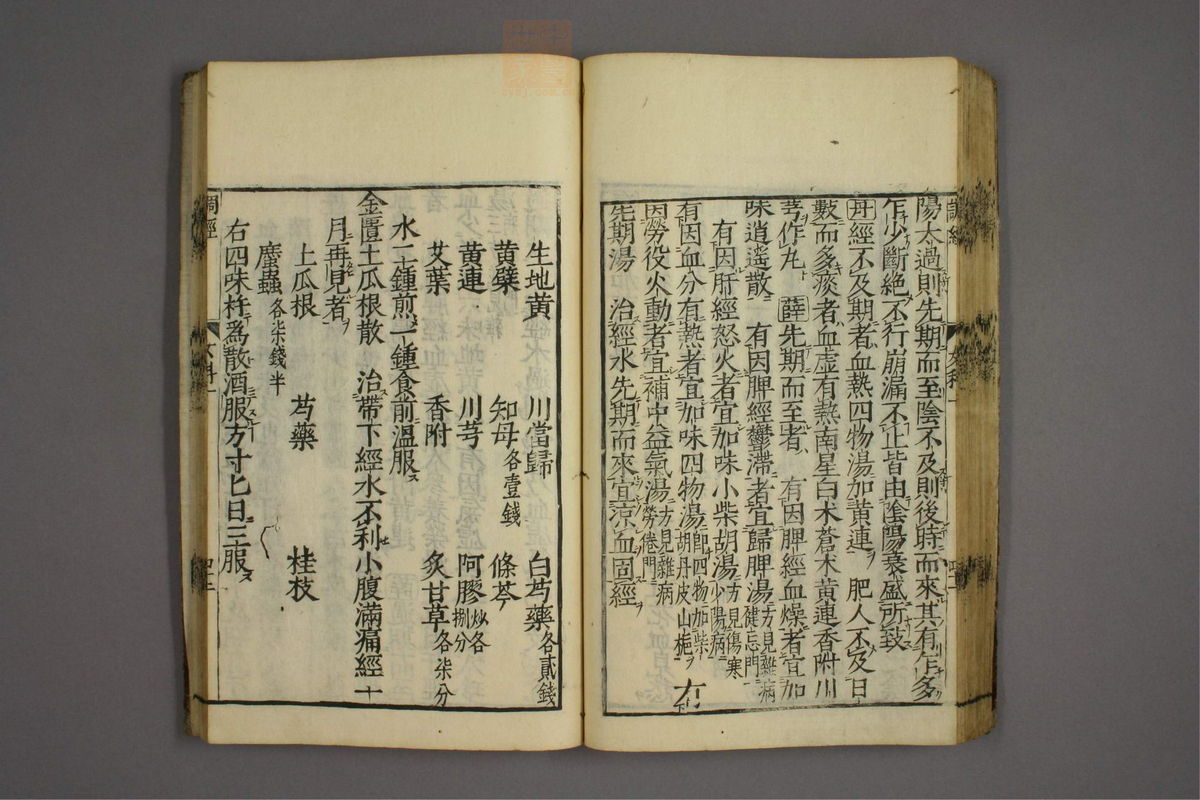 陽太過則先期而至陰不及則後時而來其有乍多
乍少斷絶不行崩漏不止皆由陰陽衰盛所致
丹經不及期者血熱四物湯加黄連 肥人不及日
數而多痰者血虚有熱南星白朮蒼朮黄連香附川
芎作丸 薛先期而至者 有因脾經血燥者宜加
味逍遥散 有因脾經鬱滯者宜歸脾湯方見雜病健忘門
有因肝經怒火者宜加味小柴胡湯方見傷寒少陽病
有因血分有熱者宜加味四物湯即四物加柴胡丹皮山梔 有
因勞役火動者宜補中益氣湯方見雜病勞倦門
先期湯 治經水先期而來宜凉血固經
生地黄 川當歸 白芍藥各貳錢
黄蘗 知母各壹錢 條芩
黄連 川芎 阿膠炒各捌分
艾葉 香附 炙甘草各柒分
水二鍾煎一鍾食前温服
金匱土瓜根散 治帶下經水不利小腹滿痛經一
月再見者
土瓜根 芍藥 桂枝
䗪蟲各柒錢半
右四味杵爲散酒服方寸匕日三服
調經
女科一
四十二